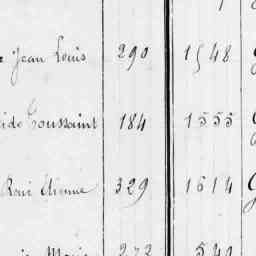 Jean Louis 290 1548
Toussaint 184 1555
René Etienne 329 1614
Marie 272 541